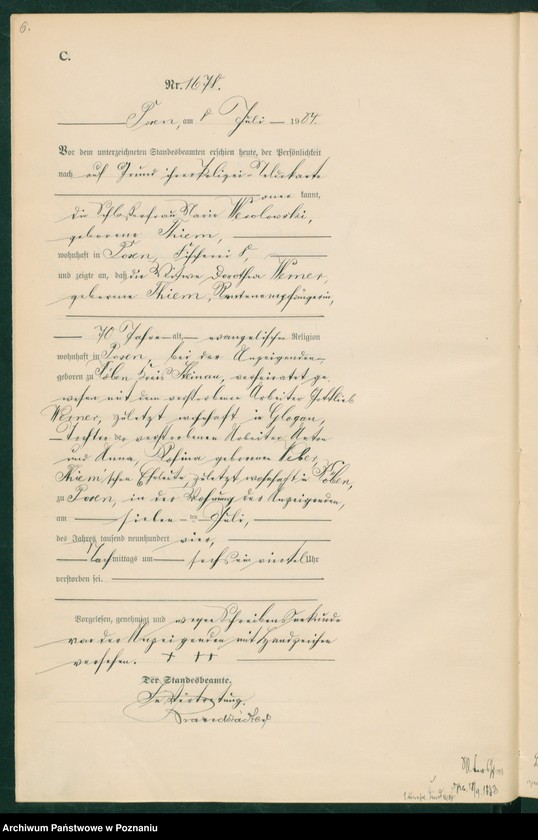 6.
C.
Nr. 1678.
Posen, am 8 Juli 1904.
Vor dem unterzeichneten Standesbeamten erschien heute, der Persönlichkeit
nach auf Grund ihrer Polizei-Meldekarte
aner kannt,
die Schlosserfrau Marie Wesolowski,
geborene Thiem,
wohnhaft in Posen, Fischerei 8,
und zeigte an, daß die Witwe Dorothea Werner,
geborene Thiem, Rentenempfängerin,
70 Jahre alt, evangelischer Religion
wohnhaft in Posen, bei der Anzeigenden
geboren zu Köben Kreis Steinau, verheiratet ge-
wesen mit dem verstorbenen Arbeiter Gottlieb
Werner, zuletzt wohnhaft in Glogau,
Tochter der verstorbenen Arbeiter
und Anna, Rosina geborenen
Thiem'schen Eheleute, zuletzt wohnhaft in Köben,
zu Posen, in der Wohnung der Anzeigenden,
am sieben ten Juli,
des Jahres tausend neunhundert vier,
Nachmittags um sechs ein viertel Uhr
verstorben sei.
Vorgelesen, genehmigt und wegen Schreibensunkunde
von der Anzeigenden mit Handzeichen
versehen. + ++
Der Standesbeamte.
In Vertretung.
Archiwum Państwowe w Poznaniu